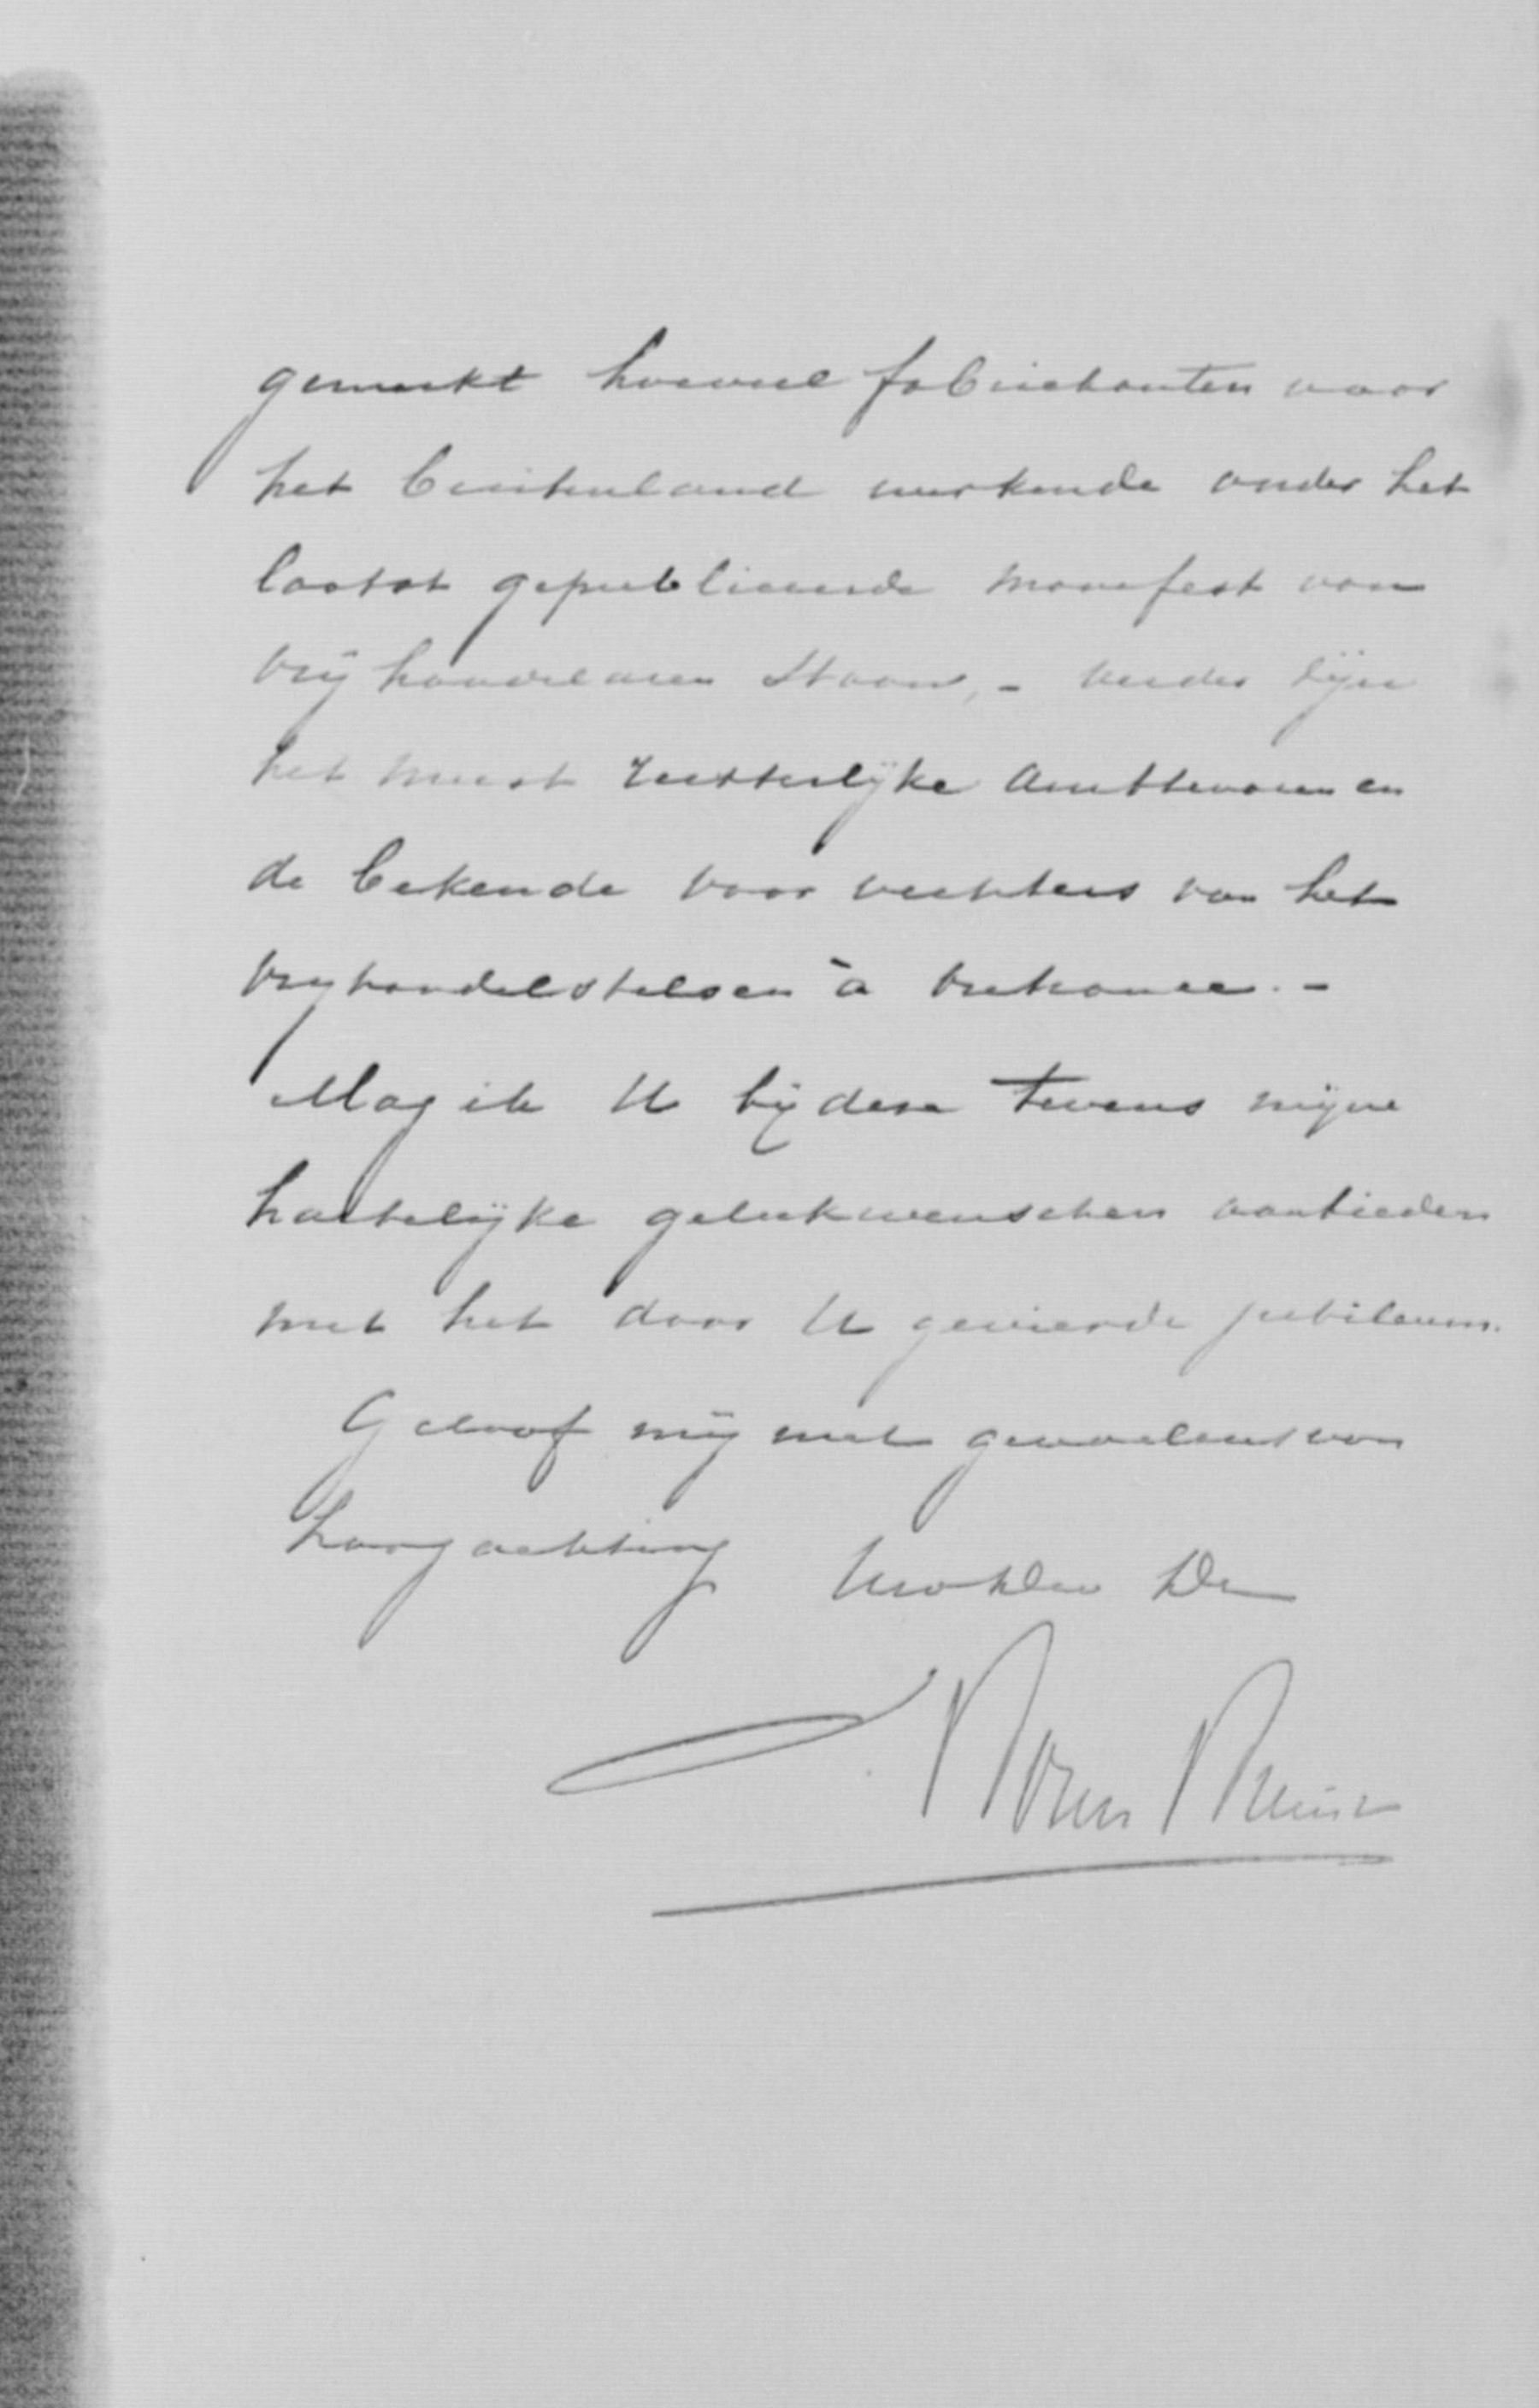 gemerkt hoeveel fabriekanten voor
het buitenland werkende onder het
laatst gepubliceerde manifest van
vrijhandelaren staan, - verder zijn
het meest rechterlijke ambtenaren en
de bekende voor vechters van het
vryhandelstelsen à outrance. -
Mag ik U bij deze tevens mijne
hartelijke gelukwenschen aanbieden
met het door U gevierde jubileum.
Geloof mij met gevoelens van
hoogachting